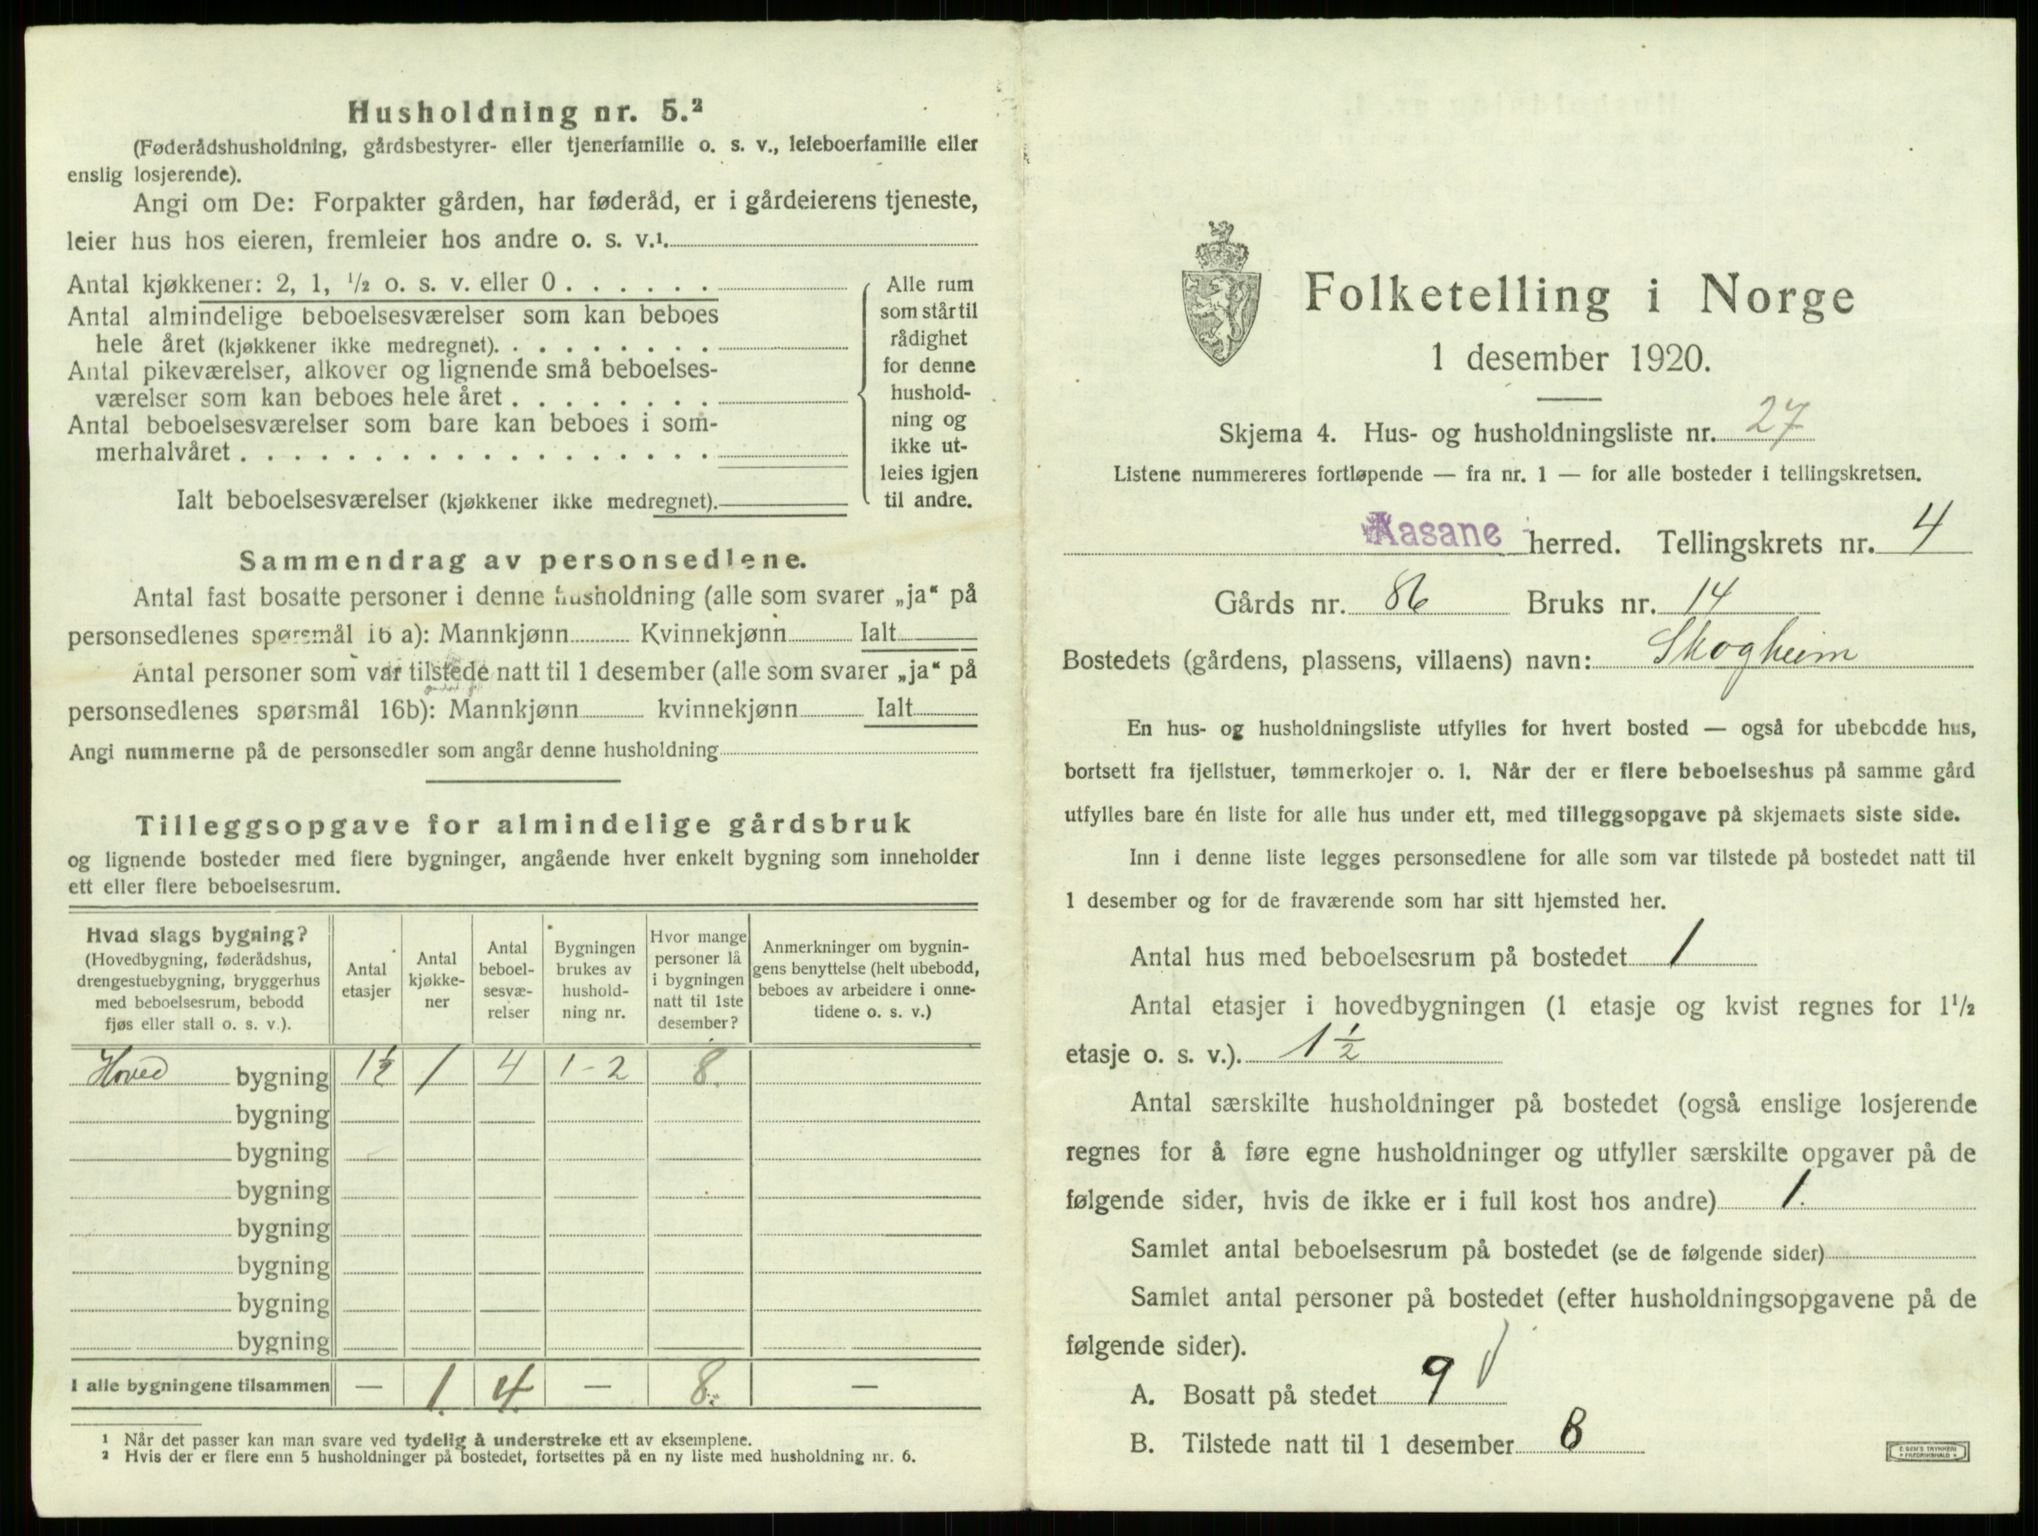 Husholdning nr. 5.²
(Føderådshusholdning, gårdsbestyrer- eller tjenerfamilie o. s. v., leieboerfamilie eller
enslig losjerende).
Angi om De: Forpakter gården, har føderåd, er i gårdeierens tjeneste,
leier hus hos eieren, fremleier hos andre o. s. v.¹.
Antal kjøkkener: 2, 1, ½ o. s. v. eller 0 . . . . . .
Antal almindelige beboelsesværelser som kan beboes
hele året (kjøkkener ikke medregnet). . . . . . . . .
Antal pikeværelser, alkover og lignende små beboelses-
værelser som kan beboes hele året . . . . . . . .
Antal beboelsesværelser som bare kan beboes i som-
merhalvåret . . . . . . . . . . . . . . . . . .
Ialt beboelsesværelser (kjøkkener ikke medregnet).
Alle rum
som står til
rådighet
for denne
hushold-
ning og
ikke ut-
leies igjen
til andre.
Sammendrag av personsedlene.
Antal fast bosatte personer i denne husholdning (alle som svarer „ja“ på
personsedlenes spørsmål 16 a): Mannkjønn Kvinnekjønn Ialt
Antal personer som var tilstede natt til 1 desember (alle som svarer „ja“ på
personsedlenes spørsmål 16b): Mannkjønn kvinnekjønn Ialt
Angi nummerne på de personsedler som angår denne husholdning
Tilleggsopgave for almindelige gårdsbruk
og lignende bosteder med flere bygninger, angående hver enkelt bygning som inneholder
ett eller flere beboelsesrum.
Hvad slags bygning?
(Hovedbygning, føderådshus,
drengestuebygning, bryggerhus
med beboelsesrum, bebodd
fjøs eller stall o. s. v.).
Antal
etasjer
Antal
kjøkke-
ner
Antal
beboel-
sesvæ-
relser
Bygningen
brukes av
hushold-
ning nr.
Hvor mange
personer lå
i bygningen
natt til 1ste
desember?
Anmerkninger om bygnin-
gens benyttelse (helt ubebodd,
beboes av arbeidere i onne-
tidene o. s. v.)
Hoved bygning 1½ 1 4 1-2 8.
bygning
bygning
bygning
bygning
bygning
bygning
bygning
I alle bygningene tilsammen — 1. 4. — 8. —
¹ Når det passer kan man svare ved tydelig å understreke ett av eksemplene.
² Hvis der er flere enn 5 husholdninger på bostedet, fortsettes på en ny liste med husholdning nr. 6.
Folketelling i Norge
1 desember 1920.
Skjema 4. Hus- og husholdningsliste nr. 27
Listene nummereres fortløpende — fra nr. 1 — for alle bosteder i tellingskretsen.
Aasane herred. Tellingskrets nr. 4
Gårds nr. 86 Bruks nr. 14
Bostedets (gårdens, plassens, villaens) navn: Skogheim
En hus- og husholdningsliste utfylles for hvert bosted — også for ubebodde hus,
bortsett fra fjellstuer, tømmerkojer o. l. Når der er flere beboelseshus på samme gård
utfylles bare én liste for alle hus under ett, med tilleggsopgave på skjemaets siste side.
Inn i denne liste legges personsedlene for alle som var tilstede på bostedet natt til
1 desember og for de fraværende som har sitt hjemsted her.
Antal hus med beboelsesrum på bostedet 1
Antal etasjer i hovedbygningen (1 etasje og kvist regnes for 1½
etasje o. s. v.). 1½
Antal særskilte husholdninger på bostedet (også enslige losjerende
regnes for å føre egne husholdninger og utfyller særskilte opgaver på de
følgende sider, hvis de ikke er i full kost hos andre) 1.
Samlet antal beboelsesrum på bostedet (se de følgende sider)
Samlet antal personer på bostedet (efter husholdningsopgavene på de
følgende sider).
A. Bosatt på stedet 9
B. Tilstede natt til 1 desember 8